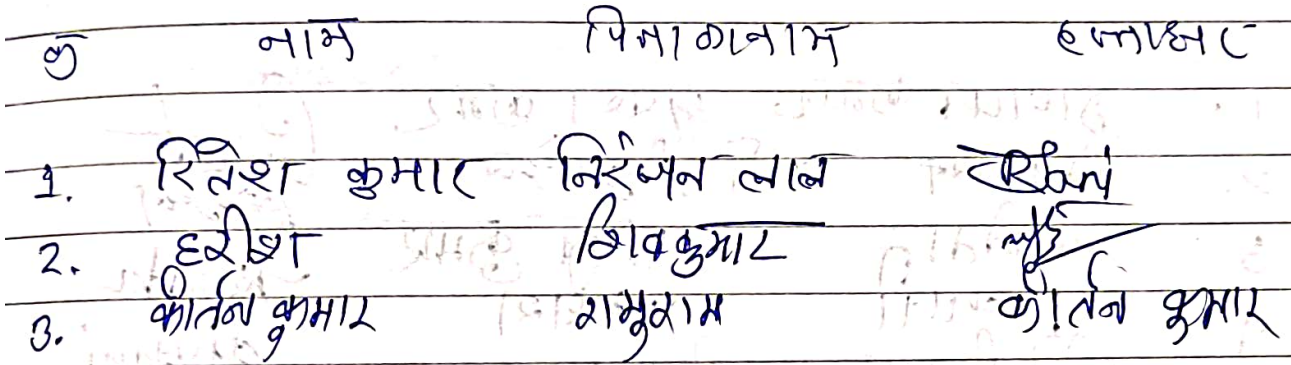 क्र नाम पिता का नाम हस्ताक्षर
1. रितेश कुमार निरंजन लाल
2. हरीश शिवकुमार
3. कीर्तन कुमार रामुराम कीर्तन कुमार